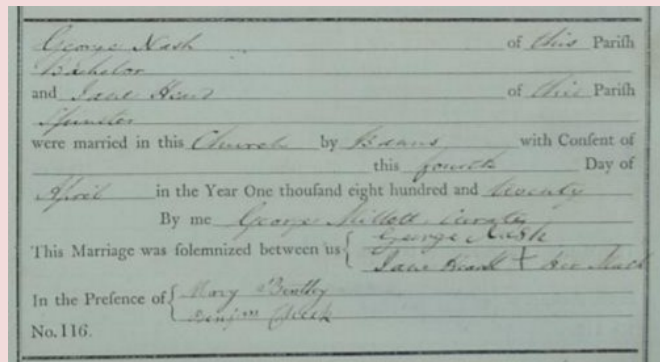 George Nash of this Parish
Bachelor
and Jane Heard of this Parish
Spinster
were married in this Church by Banns with Consent of
this fourth Day of
April in the Year One thousand eight hundred and twenty
By me George Millett Curate
This Marriage was solemnized between us { George Nash
Jane Heard + her Mark
In the Presence of { Mary
Benjm Cheek
No. 116.